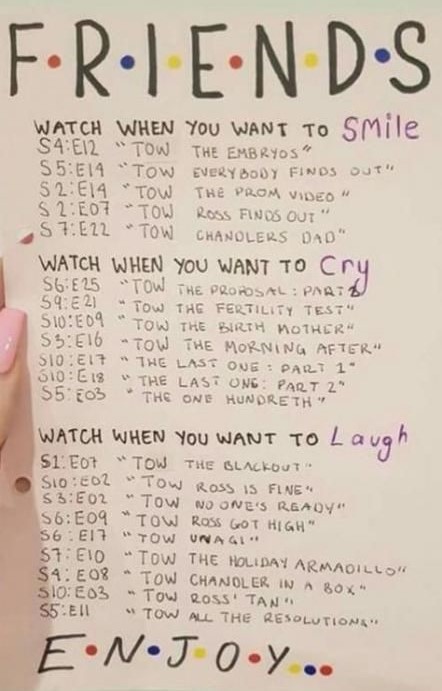 F.R.I.E.N.D.S
WATCH WHEN YOU WANT TO SMile
S4:E12 "TOW THE EMBRYOS"
S5:E14 "TOW EVERYBODY FINDS OUT"
S2:E14 "TOW THE PROM VIDEO"
S2:E07 "TOW ROSS FINDS OUT"
S7:E22 "TOW CHANDLERS DAD"
WATCH WHEN YOU WANT TO Cry
S6:E25 "TOW THE PROPOSAL: PART 2
S9:E21 "TOW THE FERTILITY TEST"
S10:E09 "TOW THE BIRTH MOTHER"
S3:E16 "TOW THE MORNING AFTER"
S10:E17 "THE LAST ONE: PART 1"
S10:E18 "THE LAST ONE: PART 2"
S5:E03 "THE ONE HUNDRETH"
WATCH WHEN YOU WANT TO Laugh
S1:E07 "TOW THE BLACKOUT"
S10:E02 "TOW ROSS IS FINE"
S3:E02 "TOW NO ONE'S READY"
S6:E09 "TOW ROSS GOT HIGH"
S6:E17 "TOW UNAGI"
S7:E10 "TOW THE HOLIDAY ARMADILLO"
S4:E08 "TOW CHANDLER IN A BOX"
S10:E03 "TOW ROSS' TAN"
S5:E11 "TOW ALL THE RESOLUTIONS"
E.N.J.O.Y...